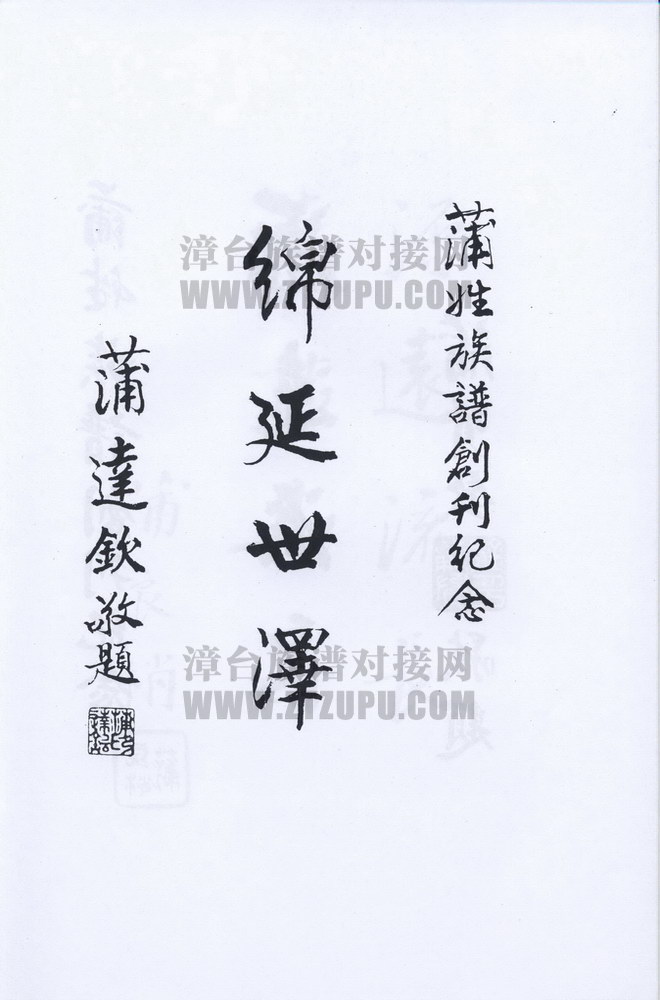 蒲姓族譜創刊紀念
綿延世澤
蒲達欽敬題
漳台族谱对接网
WWW.ZTZUPU.COM
漳台族谱对接网
WWW.ZTZUPU.COM